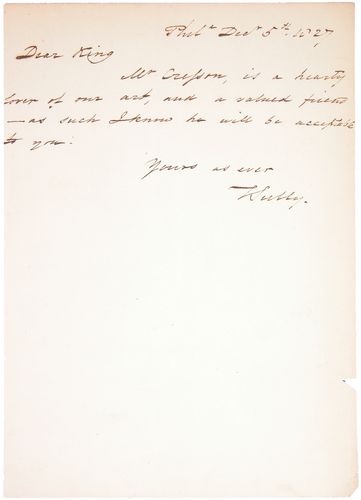 Phila Decr 5th. 1827
Dear King
Mr Cresson, is a hearty
lover of our art, and a valued friend
—as such I know he will be acceptable
to you.
Yours as ever
TSully.